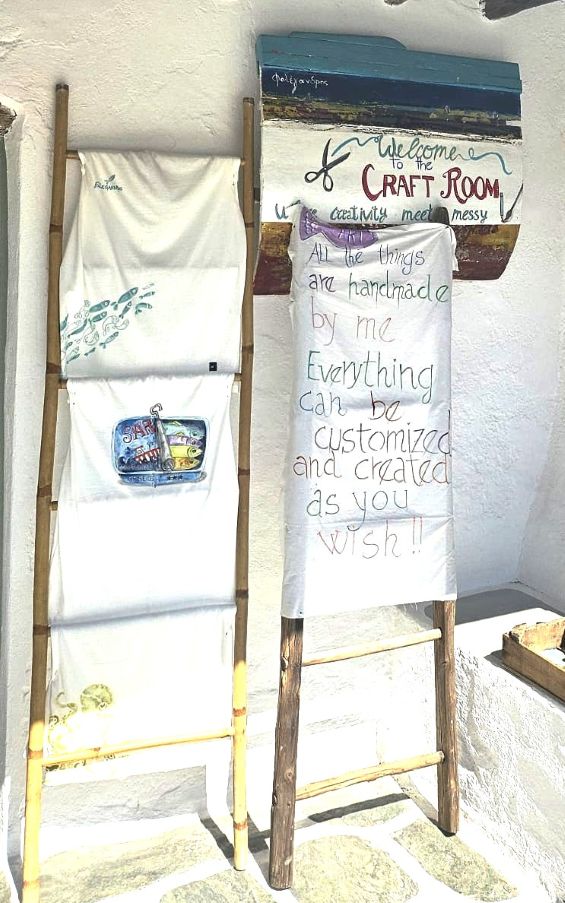 Φολέγανδρος
Welcome
to the
CRAFT ROOM
creativity meets messy
ART
All the things
are handmade
by me
Everything
can be
customized
and created
as you
wish!!
SAR